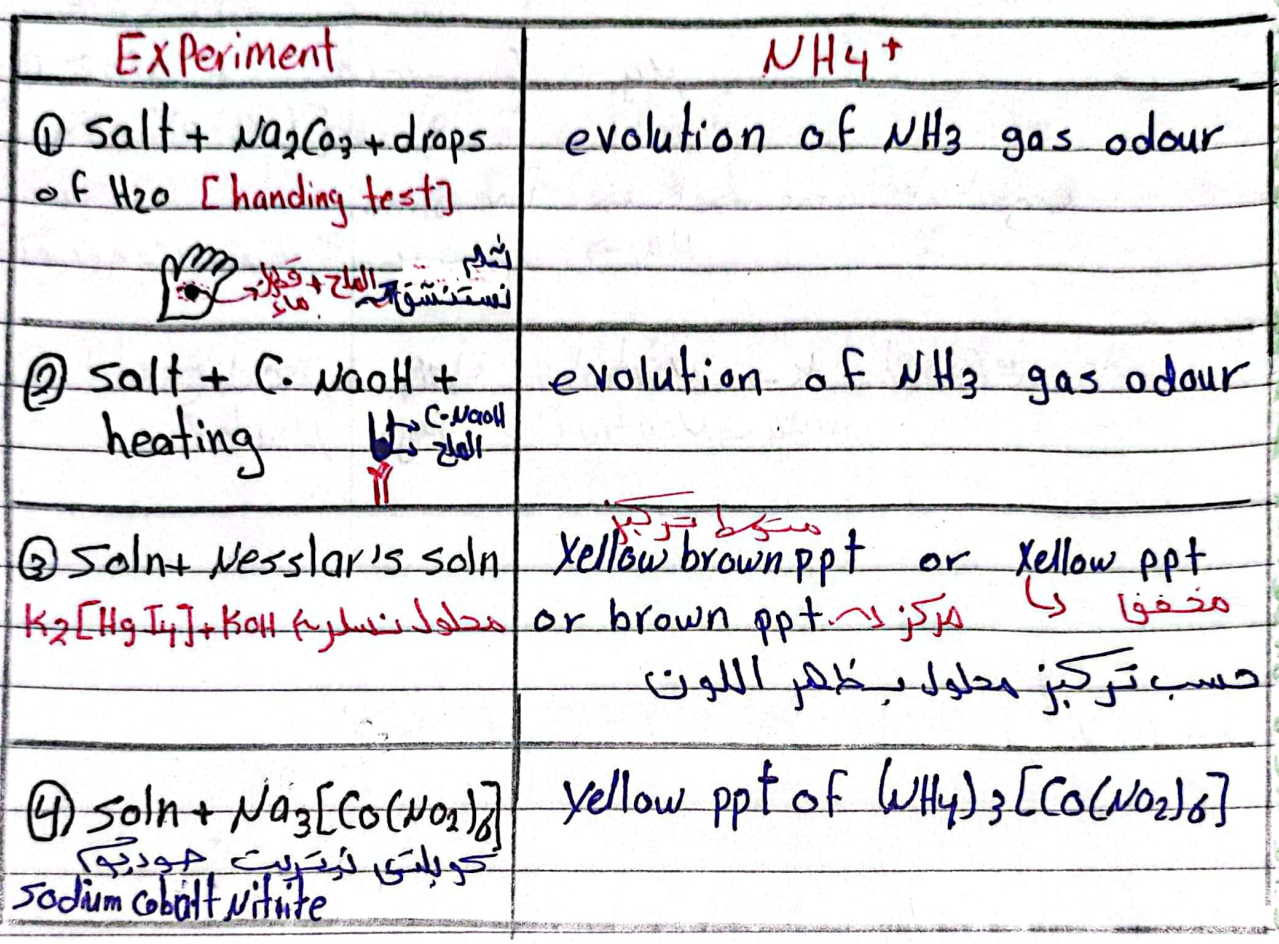 Experiment
NH4+
① Salt + Na2CO3 + drops
of H2O [handing test]
نشم
نستنشق
الملح + قطرات
ماء
evolution of NH3 gas odour
② Salt + C. NaOH +
heating
C-NaOH
الملح
evolution of NH3 gas odour
③ Soln + Nesslar's soln
K2[HgI4]+KOH محلول نسلر
متوسط تركيز
Yellow brown ppt or Yellow ppt
مخفف
or brown ppt. مركز
حسب تركيز محلول يظهر اللون
④ Soln + Na3[Co(NO2)6]
كوبلتى نيتريت صوديوم
Sodium cobalt Nitrite
Yellow ppt of (NH4)3[Co(NO2)6]